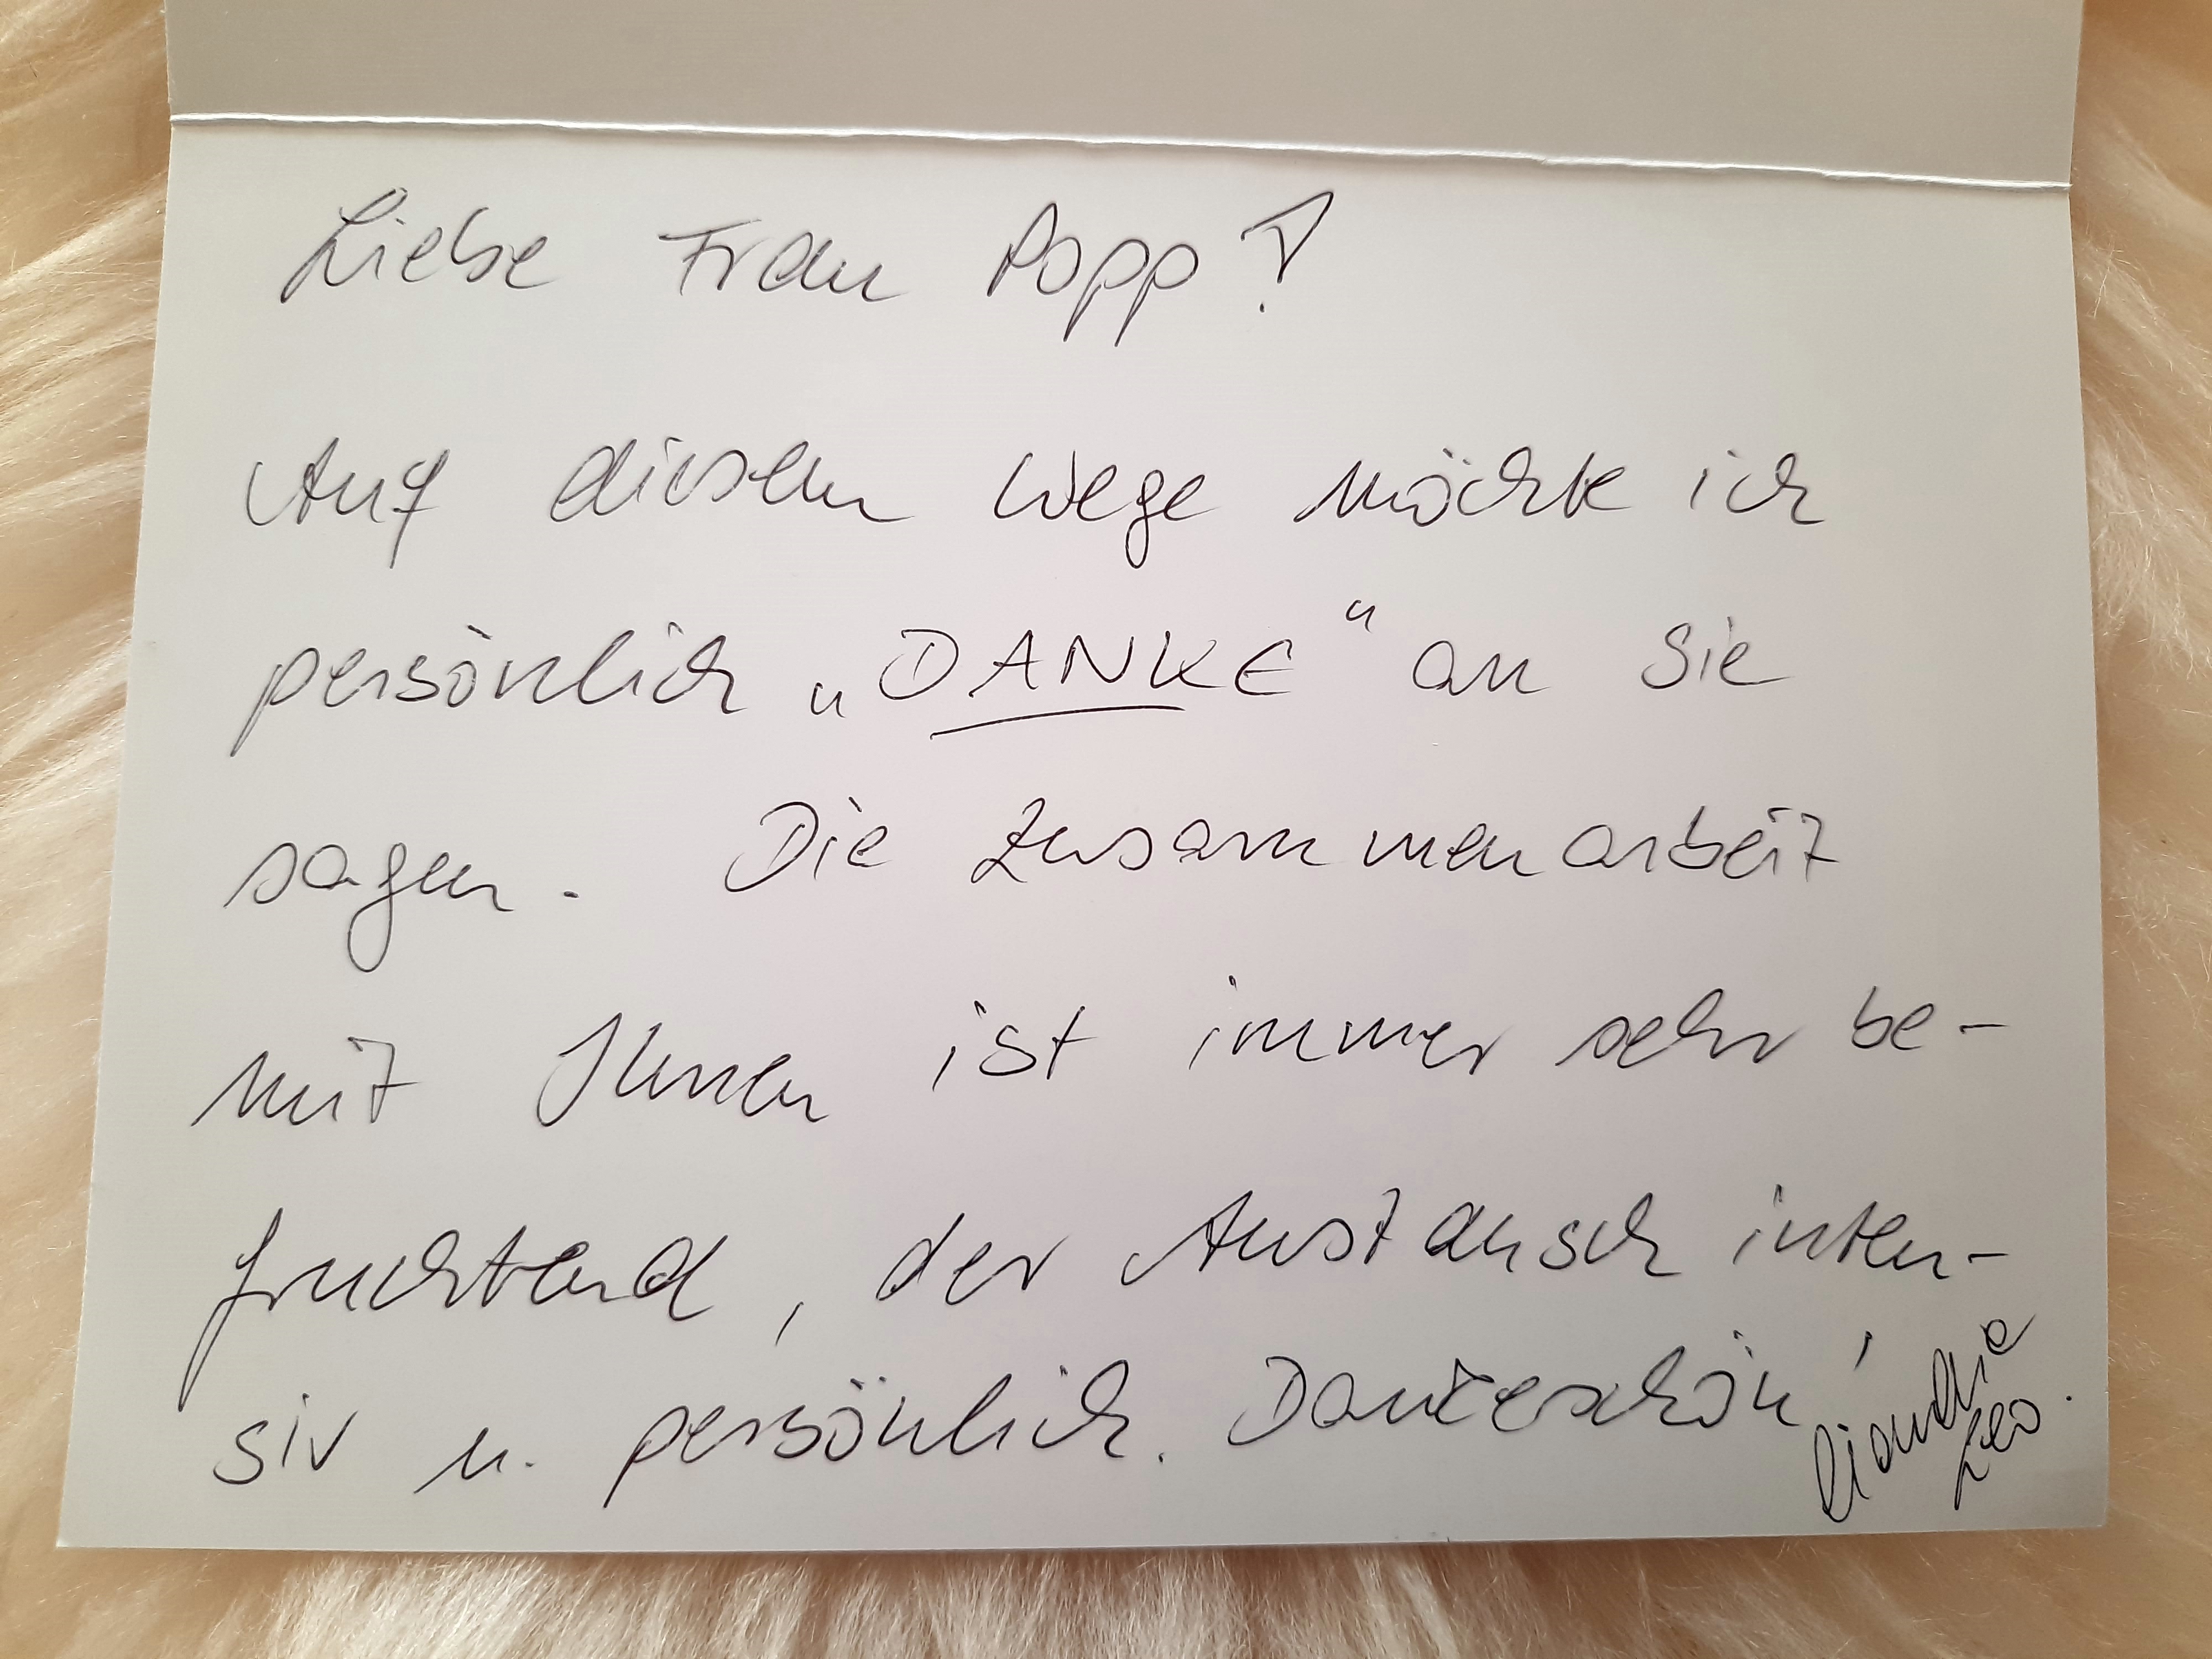 Liebe Frau Popp!
Auf diesem Wege möchte ich
persönlich „DANKE“ an Sie
sagen. Die Zusammenarbeit
mit Ihnen ist immer sehr be-
fruchtend, der Austausch inten-
siv u. persönlich. Dankeschön!
Claudia
Leo.